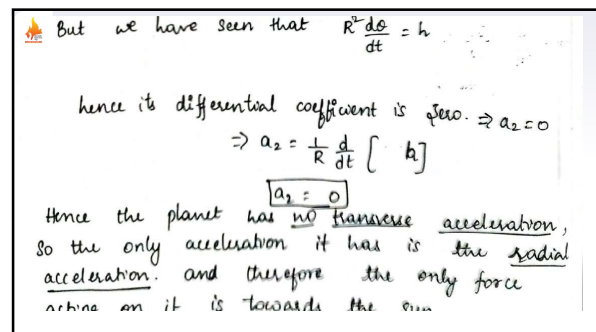 But we have seen that R² dθ/dt = h
hence its differential coefficient is zero. ⇒ a₂ = 0
⇒ a₂ = 1/R d/dt [ h]
a₂ = 0
Hence the planet has no transverse acceleration,
So the only acceleration it has is the radial
acceleration. and therefore the only force
acting on it is towards the sun